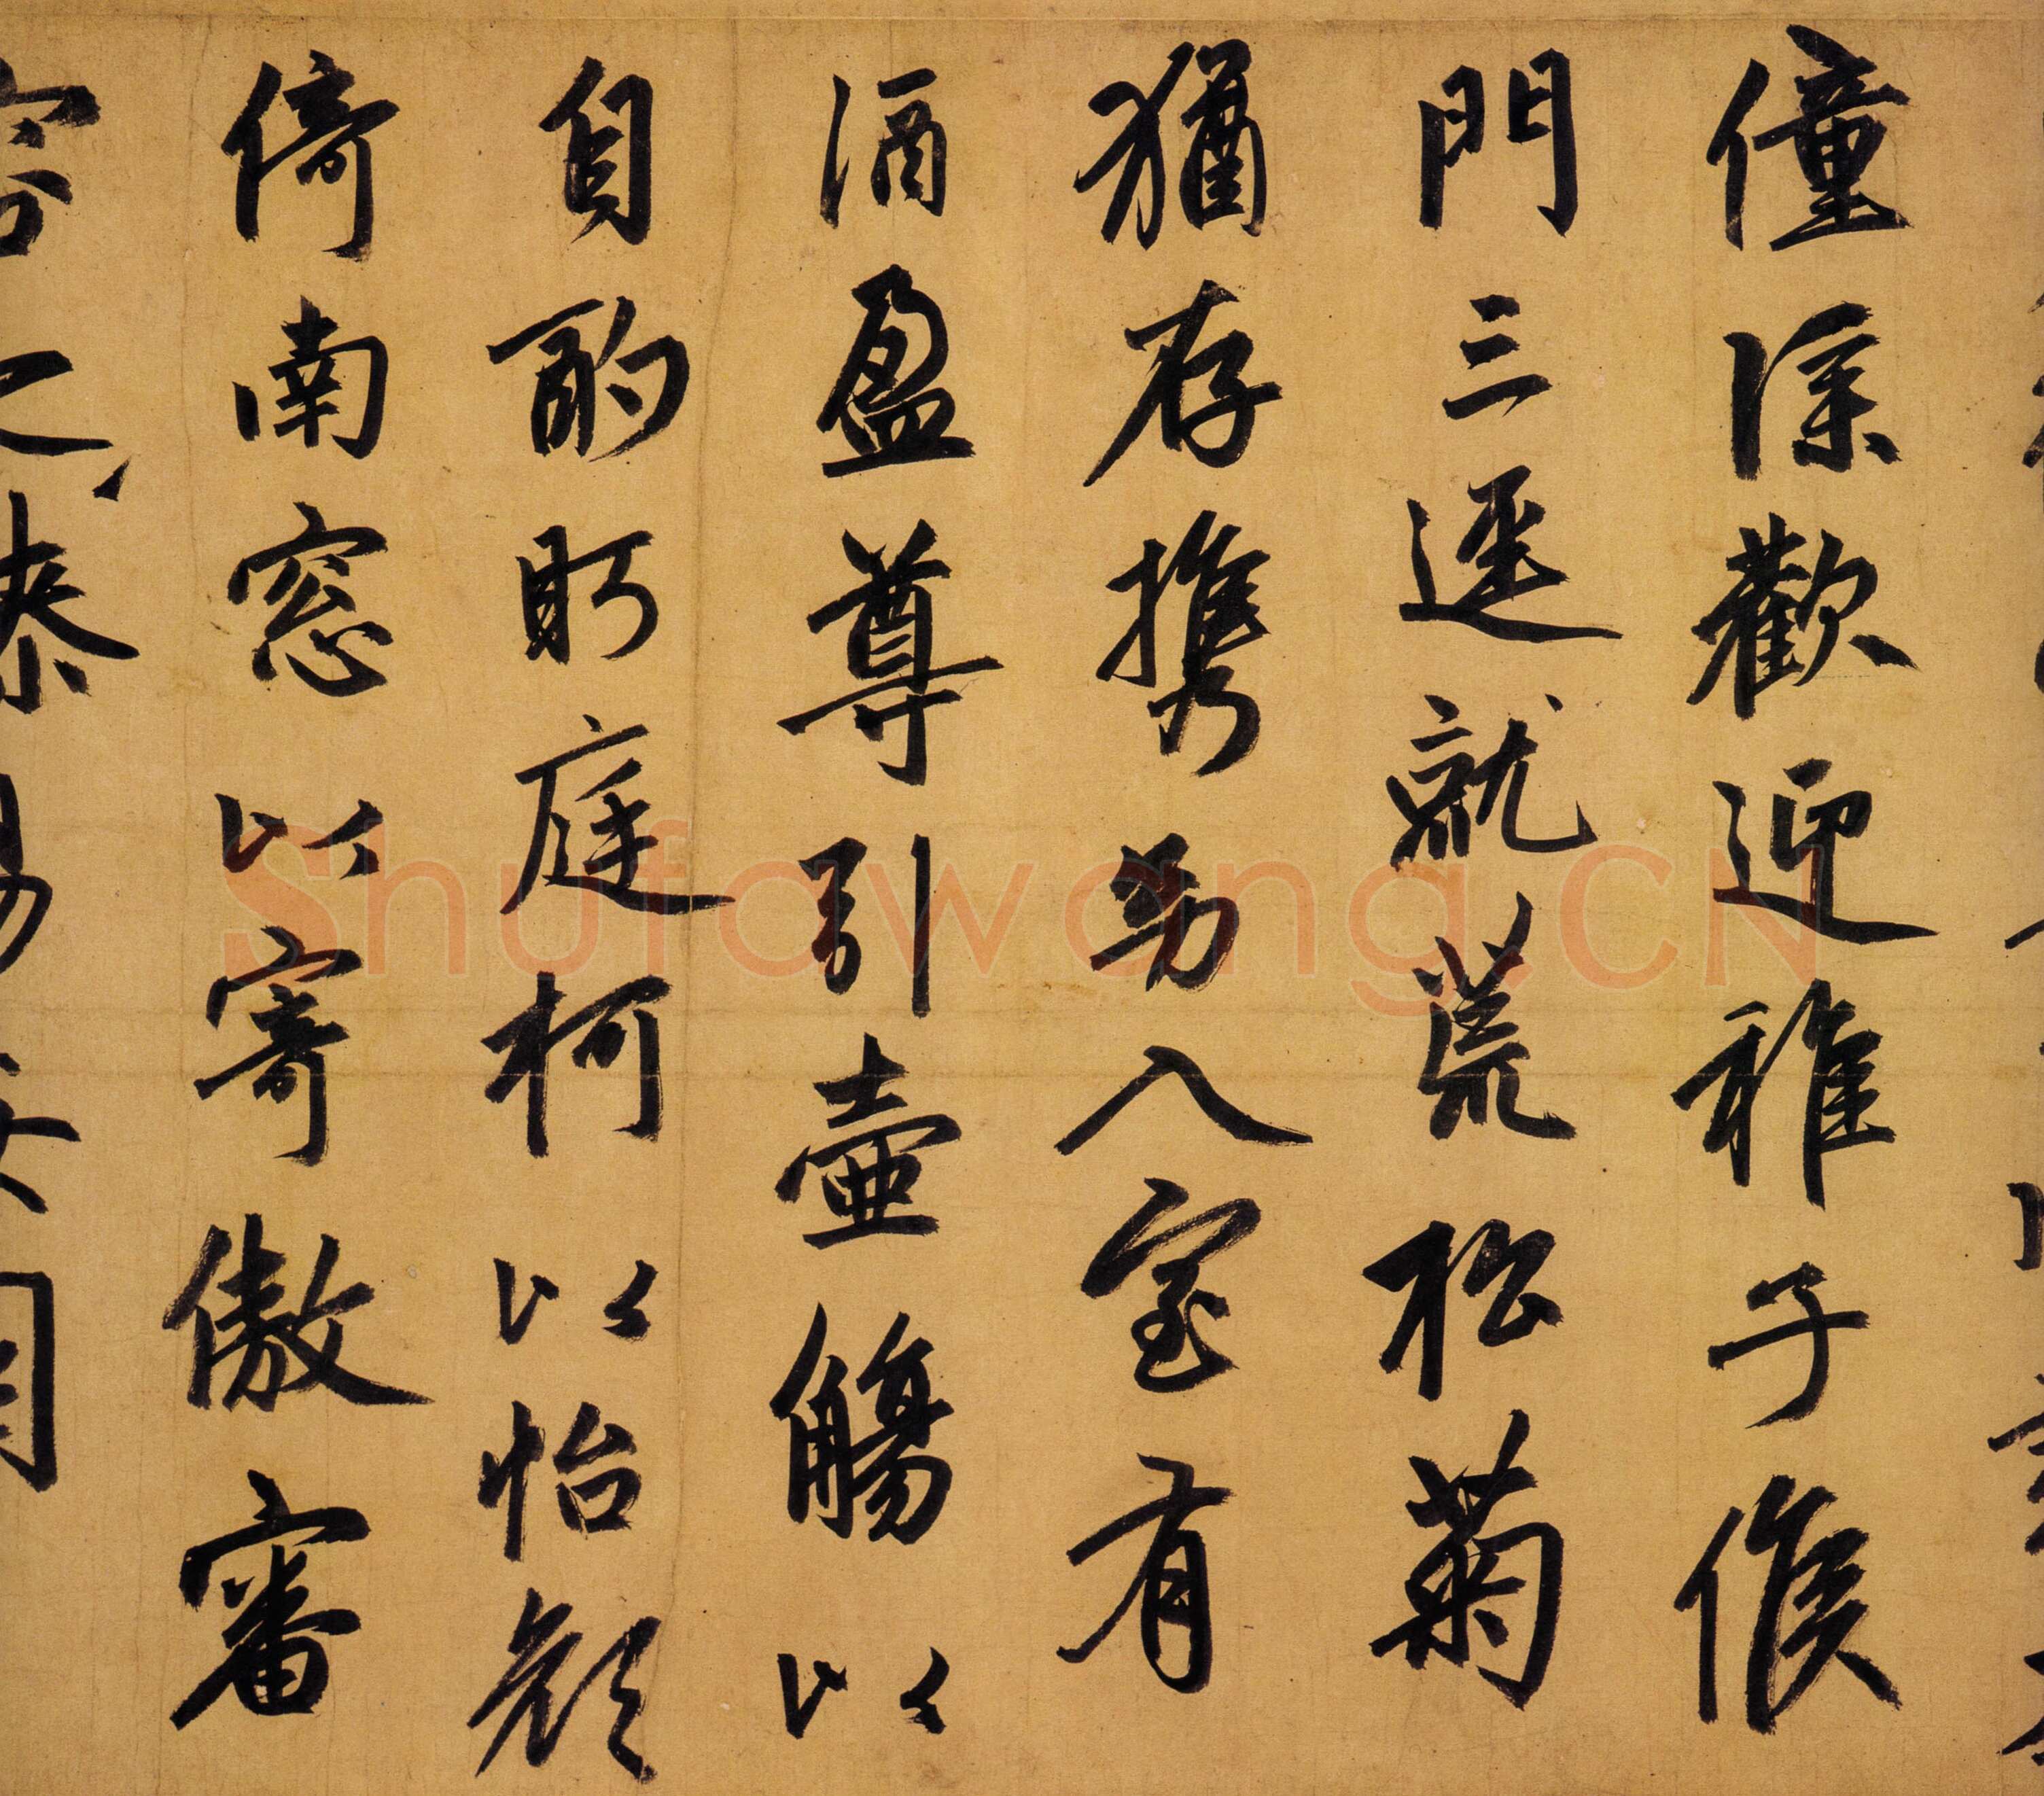 僮僕歡迎稚子候
門三逕就荒松菊
猶存携幼入室有
酒盈尊引壺觴以
自酌眄庭柯以怡顔
倚南窓以寄傲審
Shufawang.CN